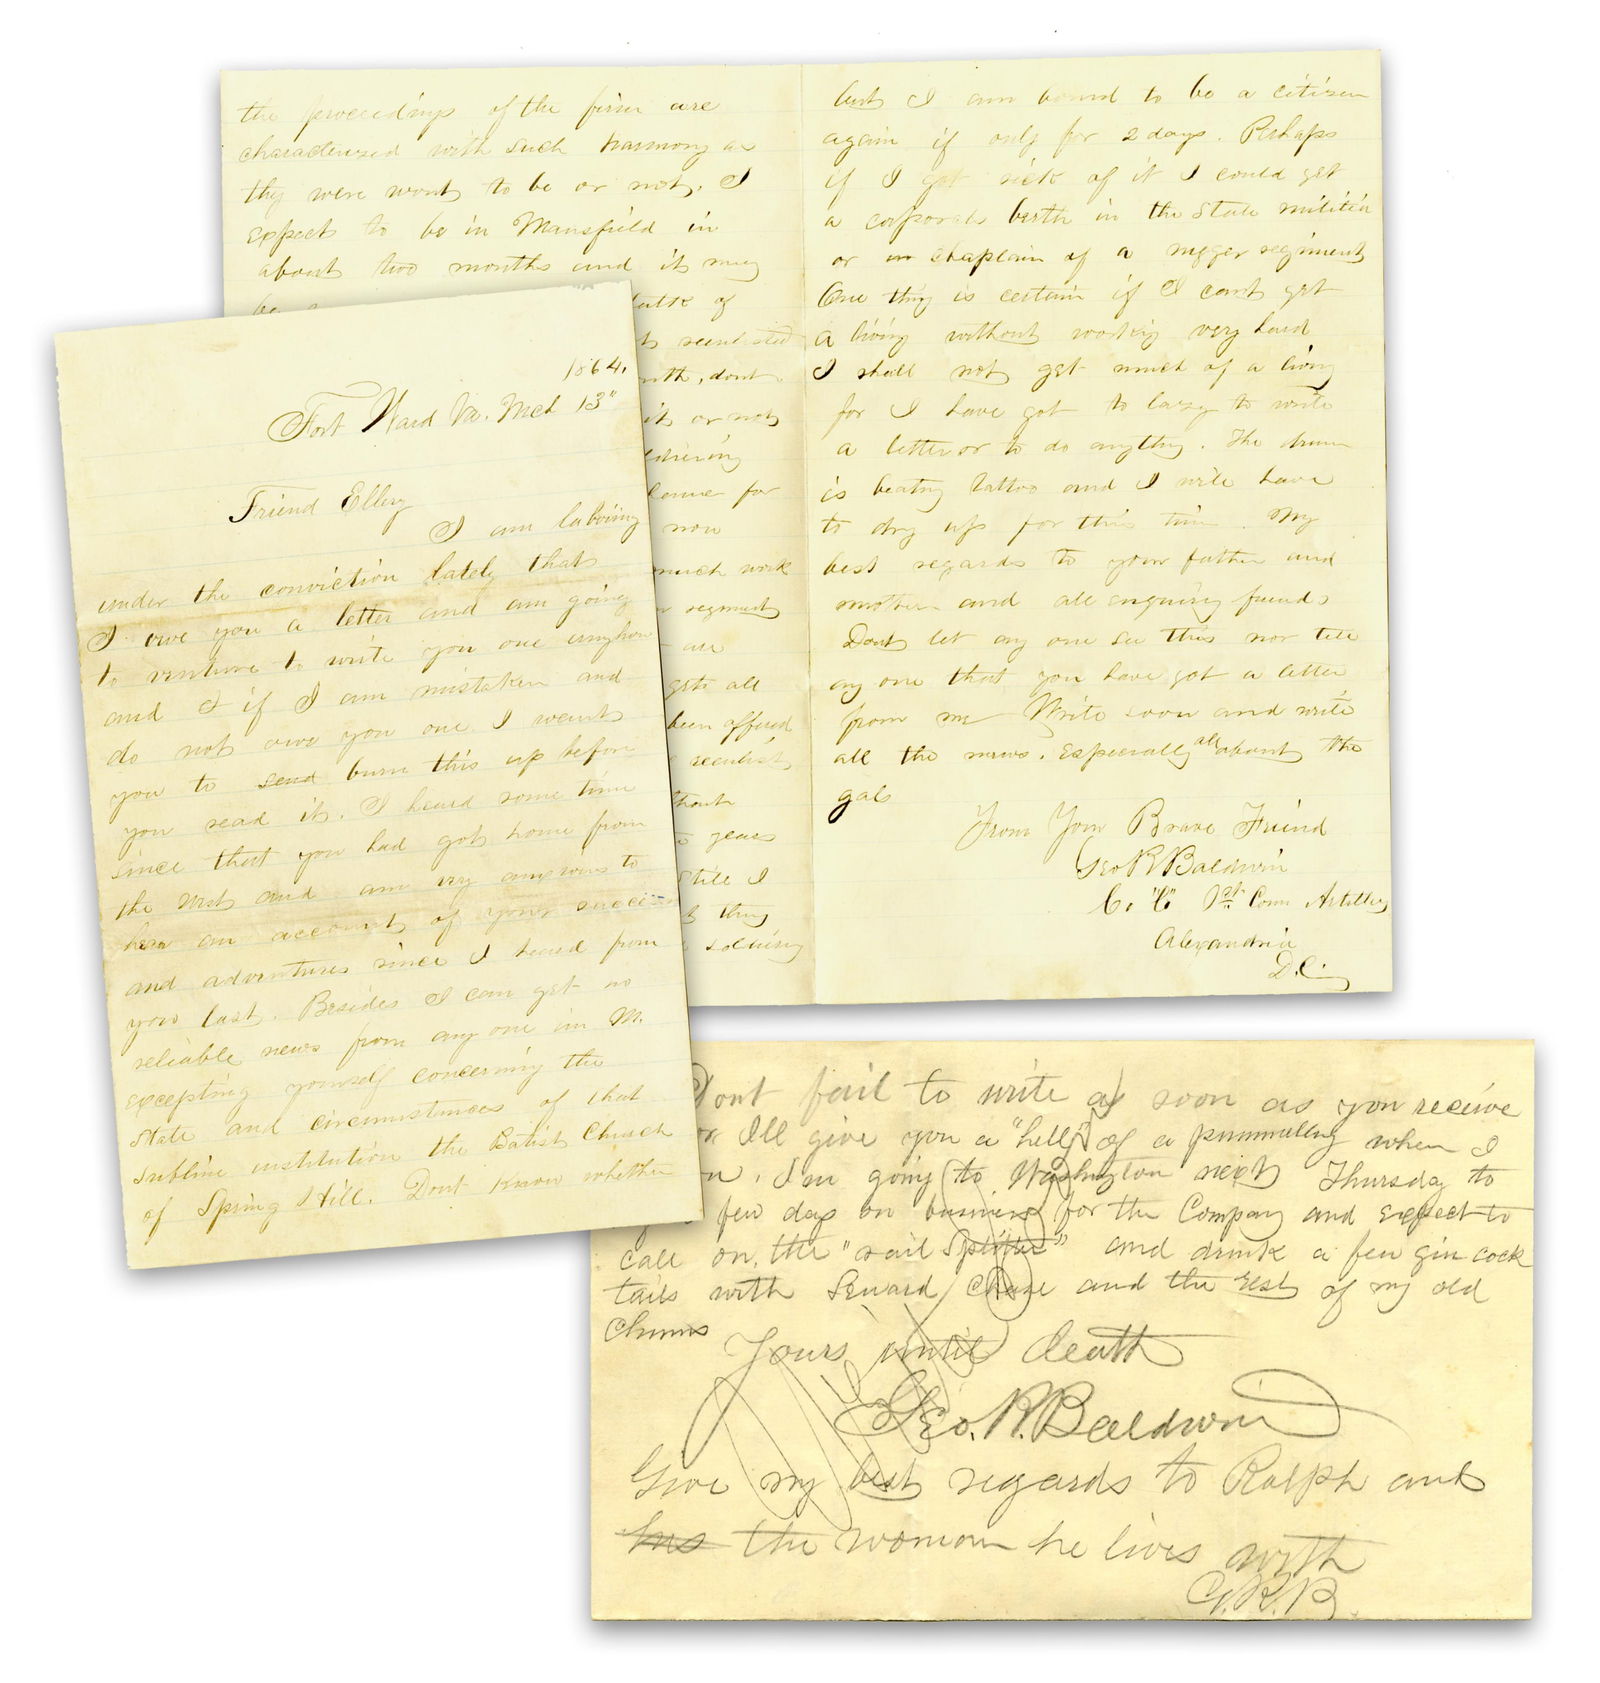 1864.
Fort Ward Va. Mch 13"
Friend Ellery
I am laboring
under the conviction lately that
I owe you a letter and am going
to venture to write you one anyhow
and if I am mistaken and
do not owe you one I want
you to send burn this up before
you read it. I heard some time
since that you had got home from
the West and am very anxious to
hear an account of your
and adventures since I heard from
you last. Besides I can get no
reliable news from any one in M.
excepting yourself concerning the
State and circumstances of that
sublime institution the Batist Church
of Spring Hill. Dont know whether
the proceedings of the firm are
characterized with such harmony as
they were wont to be or not. I
expect to be in Mansfield in
about two months and it may
be
talk of
dont
it or not
soldiering
for
now
much work
regiment
are
gets all
been offered
reenlist
years
Still I
thing
soldiering
but I am bound to be a citizen
again if only for 2 days. Perhaps
if I got sick of it I could get
a corporals berth in the State militia
or in chaplain of a nigger regiment
One thing is certain if I cant get
a living without working very hard
I shall not get much of a living
for I have got to lazy to write
a letter or to do anything. The drum
is beating Tattoo and I will have
to dry up for this time. My
best regards to your father and
mother and all enquiring friends
Dont let any one see this nor tell
any one that you have got a letter
from me Write soon and write
all the news. Especially all about the
gals
From Your Brave Friend
Geo R Baldwin
Co. "C" 1st Conn Artillery
Alexandria
D.C.
Dont fail to write as soon as you receive
or Ill give you a "hell" of a pummelling when I
. I'm going to Washington next Thursday to
few days on business for the Company and expect to
call on the "rail splitter" and drink a few gin cock
tails with Seward Chase and the rest of my old
chums
Yours until death
Geo. R. Baldwin
Give my best regards to Ralph and
his the woman he lives with
G.R.B.